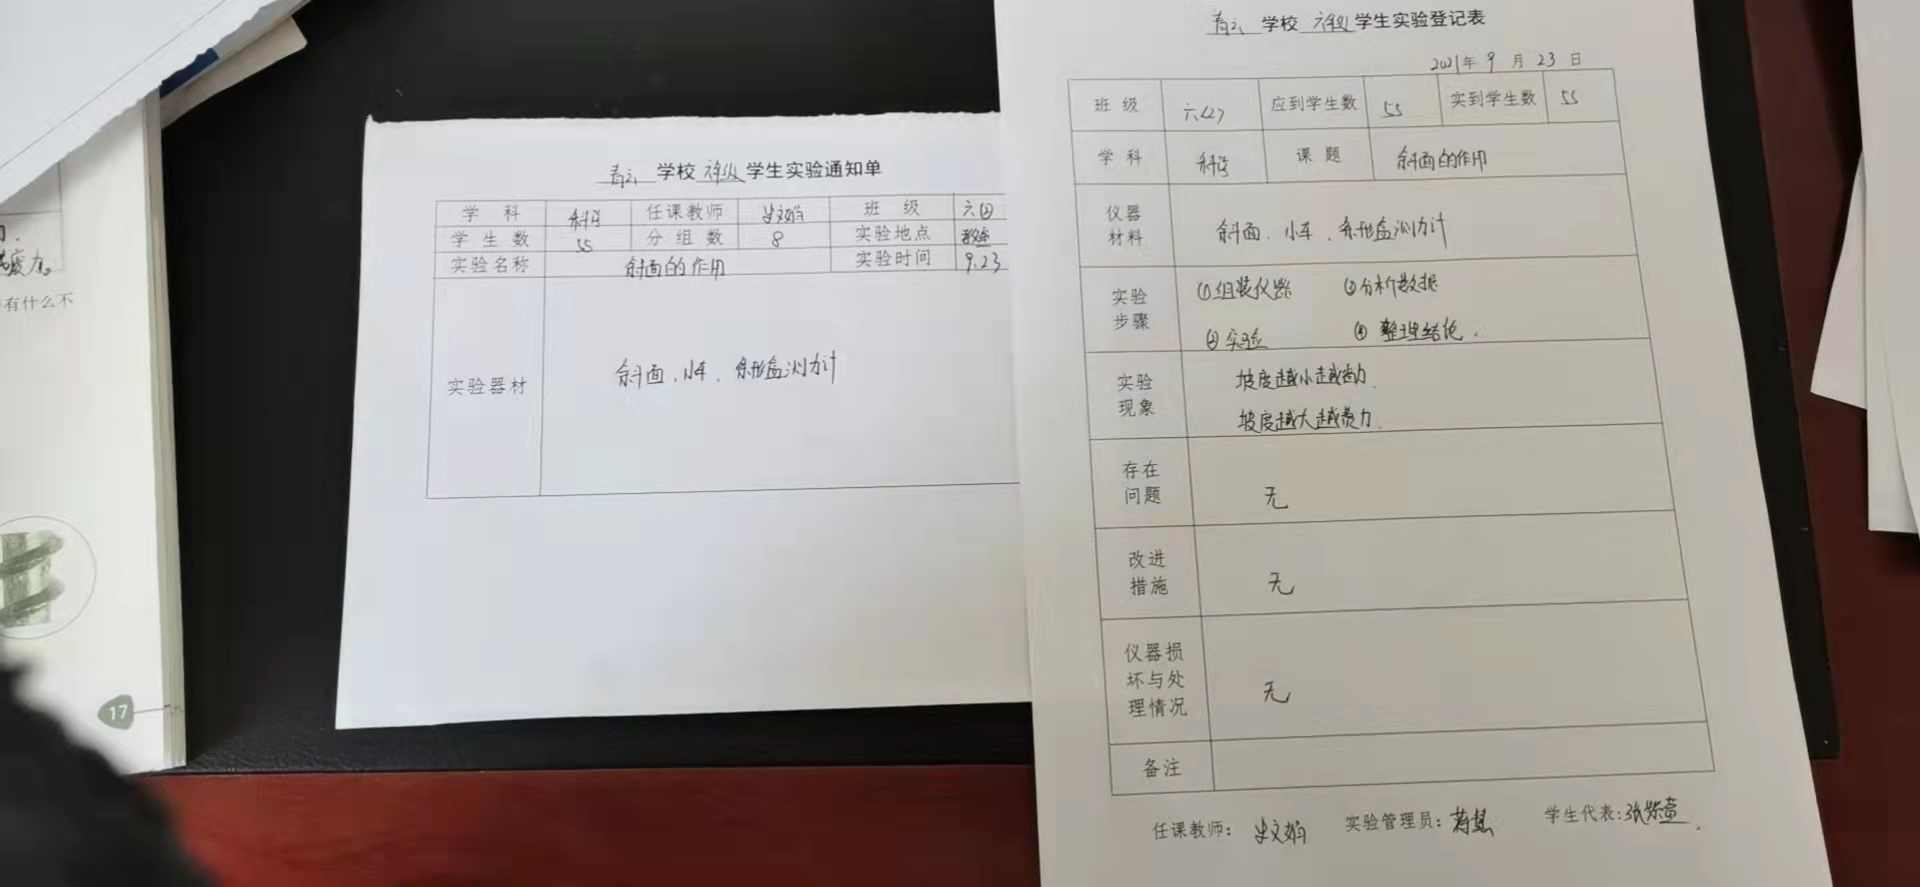 力。
有什么不
17
青云 学校 六年级 学生实验通知单
学 科 科学 任课教师 史文娟 班 级
学 生 数 55 分 组 数 8 实验地点 教室
实验名称 斜面的作用 实验时间 9.23
实验器材 斜面、小车、条形盒测力计
青云 学校 六年级 学生实验登记表
2021年 9 月 23 日
班 级 六(2) 应到学生数 55 实到学生数 55
学 科 科学 课 题 斜面的作用
仪器
材料 斜面、小车、条形盒测力计
实验
步骤
①组装仪器 ③分析数据
②实验 ④整理结论.
实验
现象
坡度越小越省力.
坡度越大越费力.
存在
问题 无
改进
措施 无
仪器损
坏与处
理情况 无
备注
任课教师: 史文娟 实验管理员: 学生代表: